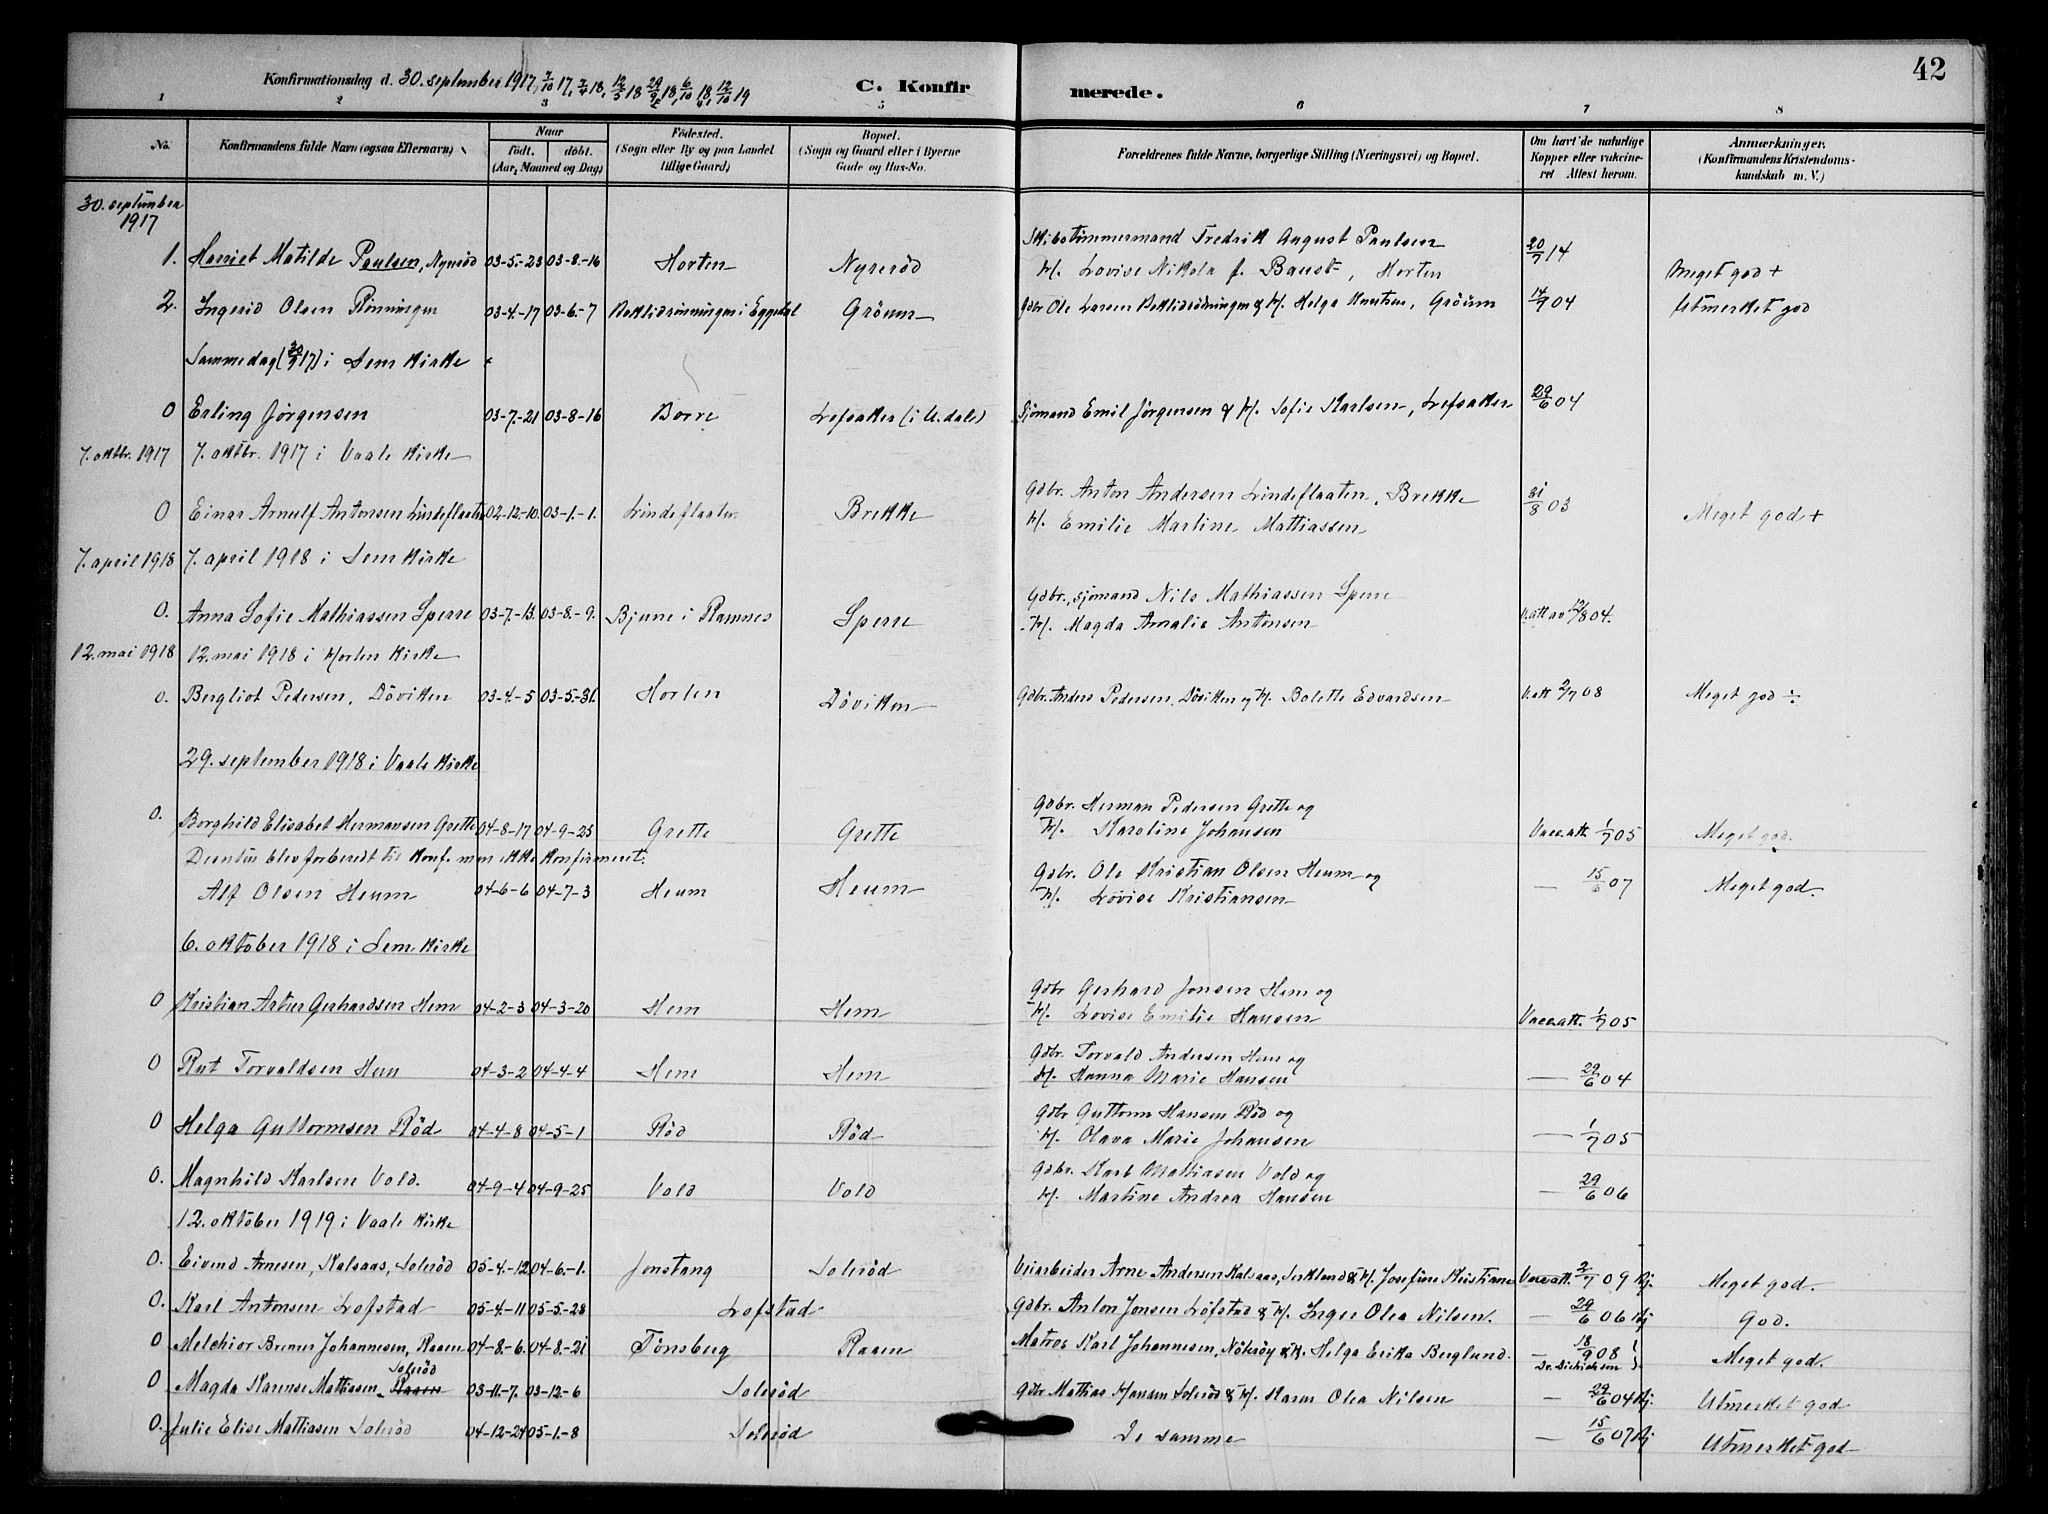 42
Konfirmationsdag d. 30. september 1917, 7/10 17, 7/4 18, 12/5 18 29/9 18, 6/10 18, 12/10 19
C. Konfirmerede.
1 2 3 5 6 7 8
No. Konfirmandens fulde Navn (ogsaa Efternavn) Naar født. døbt. (Aar, Maaned og Dag) Fødested. (Sogn eller By og paa Landet tillige Gaard) Bopæl. (Sogn og Gaard eller i Byerne Gade og Hus-No. Forældrenes fulde Navne, borgerlige Stilling (Næringsvei) og Bopæl. Om havt de naturlige Kopper eller vakcineret Attest herom. Anmærkninger. (Konfirmandens Kristendomskundskab m. V.)
30. september 1917
1. Harriet Matilde Paulsen, Nyrerød 03-5.-23 03-8.-16 Horten Nyrerød Skibstømmermand Fredrik August Paulsen
H. Lovise Nikola f. Baust, Horten 20/7 14 Meget god +
2. Ingerid Olsen Rönningen 03-4.-17 03-6.-7 i Eggedal Gröum Gdbr Ole Larsen & H. Helga Knutsen, Gröum 14/9 04 Utmerket god
Samme dag (30/9 17) i Sem Kirke
0 Erling Jørgensen 03-7.-21 03-8-16 Borre Lefsaker (i U.dals) Sjömand Emil Jørgensen & H. Sofie Karlsen, Lefsaker 29/6 04
7. oktbr. 1917 7. oktbr. 1917 i Vaale Kirke
0 Einar Arnulf Antonsen Lindeflaaten 02-12.-10. 03-1.-1. Lindeflaaten Brekke Gdbr. Anton Andersen Lindeflaaten, Brekke
H. Emilie Martine Mattiassen 31/8 03 Meget god +
7. april 1918 7. april 1918 i Sem Kirke
0. Anna Sofie Mathiassen Sperre 03-7.-13. 03-8.-9. Bjune i Ramnes Sperre Gdbr., sjömand Nils Mathiassen Sperre
H. Magda Amalie Antonsen V.att av 12/8 04.
12. mai 1918 12. mai 1918 i Horten Kirke
0. Bergliot Pedersen, Döviken 03-4.-5 03-5.-31. Horten Döviken Gdbr. Anders Pedersen, Döviken og H. Bolette Edvardsen V.att 2/7 08 Meget god ÷
29. september 1918 i Vaale Kirke
0. Borghild Elisabet Hermansen Grette 04-8-17 04-9-25 Grette Grette Gdbr. Herman Pedersen Grette og
H. Karoline Johansen Vacc.att. 1/7 05 Meget god.
Desuten blev forberedt til Konf. men ikke konfirmeret.
Alf Olsen Heum 04-6-6 04-7-3 Heum Heum Gdbr. Ole Kristian Olsen Heum og
H. Lovise Kristiansen — 15/6 07 Meget god.
6. oktober 1918 i Sem Kirke
0 Kristian Artur Gerhardsen Hem 04-2-3 04-3-20 Hem Hem Gdbr Gerhard Jonsen Hem og
H. Lovise Emilie Hansen Vacc.att. 1/7 05
0 Rut Torvaldsen Hem 04-3-2 04-4-4 Hem Hem Gdbr. Torvald Andersen Hem og
H. Hanna Marie Hansen — 29/6 04
0 Helga Guttormsen Röd 04-4-8 04-5-1 Röd Röd Gdbr Guttorm Hansen Röd og
H. Olava Marie Johansen — 1/7 05
0. Magnhild Karlsen Vold. 04-9-4 04-9-25 Vold Vold Gdbr. Karl Mattiasen Vold og
H. Martine Andrea Hansen — 29/6 06
12. oktober 1919 i Vaale Kirke
0. Eivind Arnesen, Kalsaas, Solerød 05-4.-12 04-6.-1. Jonstang Solerød Veiarbeider Arne Andersen Kalsaas, & H. Josefine Kristians Vacc.att. 2/7 09 Kj. Meget god.
0. Karl Antonsen Lofstad 05-4.-11 05-5-28 Lofstad Gdbr. Anton Jonsen Löfstad & H. Inger Olea Nilsen. — 29/6 06 Kj God.
0 Melchior Johannesen, Raaen 04-8.-6. 04-8.-21 Tönsberg Raaen Matros Karl Johannesen, Nötterøy & H. Helga Erika Berglund. — 18/9 08 Meget god.
0 Magda Karense Mattiasen Solerød 03-11.-7. 03-12-6 Solerød Gdbr Mathias Hansen Solerød & H. Karen Olea Nilsen — 29/6 04 Kj. Utmerket god
0. Julie Elise Mattiasen Solerød 04-12-24 05-1.-8 Solerød De samme — 15/6 07 Kj Utmerket god